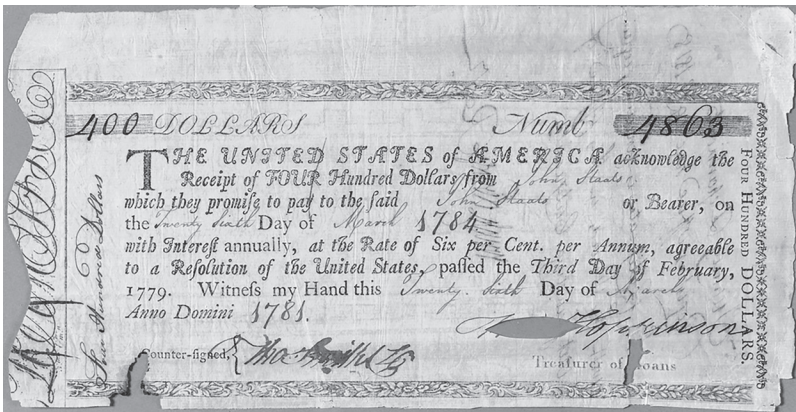 400 DOLLARS Numb 4863
THE UNITED STATES of AMERICA acknowledge the
Receipt of FOUR Hundred Dollars from John Staats
which they promise to pay to the said John Staats or Bearer, on
the Twenty Sixth Day of March 1784
with Interest annually, at the Rate of Six per Cent. per Annum, agreeable
to a Resolution of the United States, passed the Third Day of February,
1779. Witness my Hand this Twenty Sixth Day of March
Anno Domini 1781.
Hopkinson
Counter-signed, Tho Smith
Treasurer of Loans
Four Hundred Dollars
FOUR HUNDRED DOLLARS.